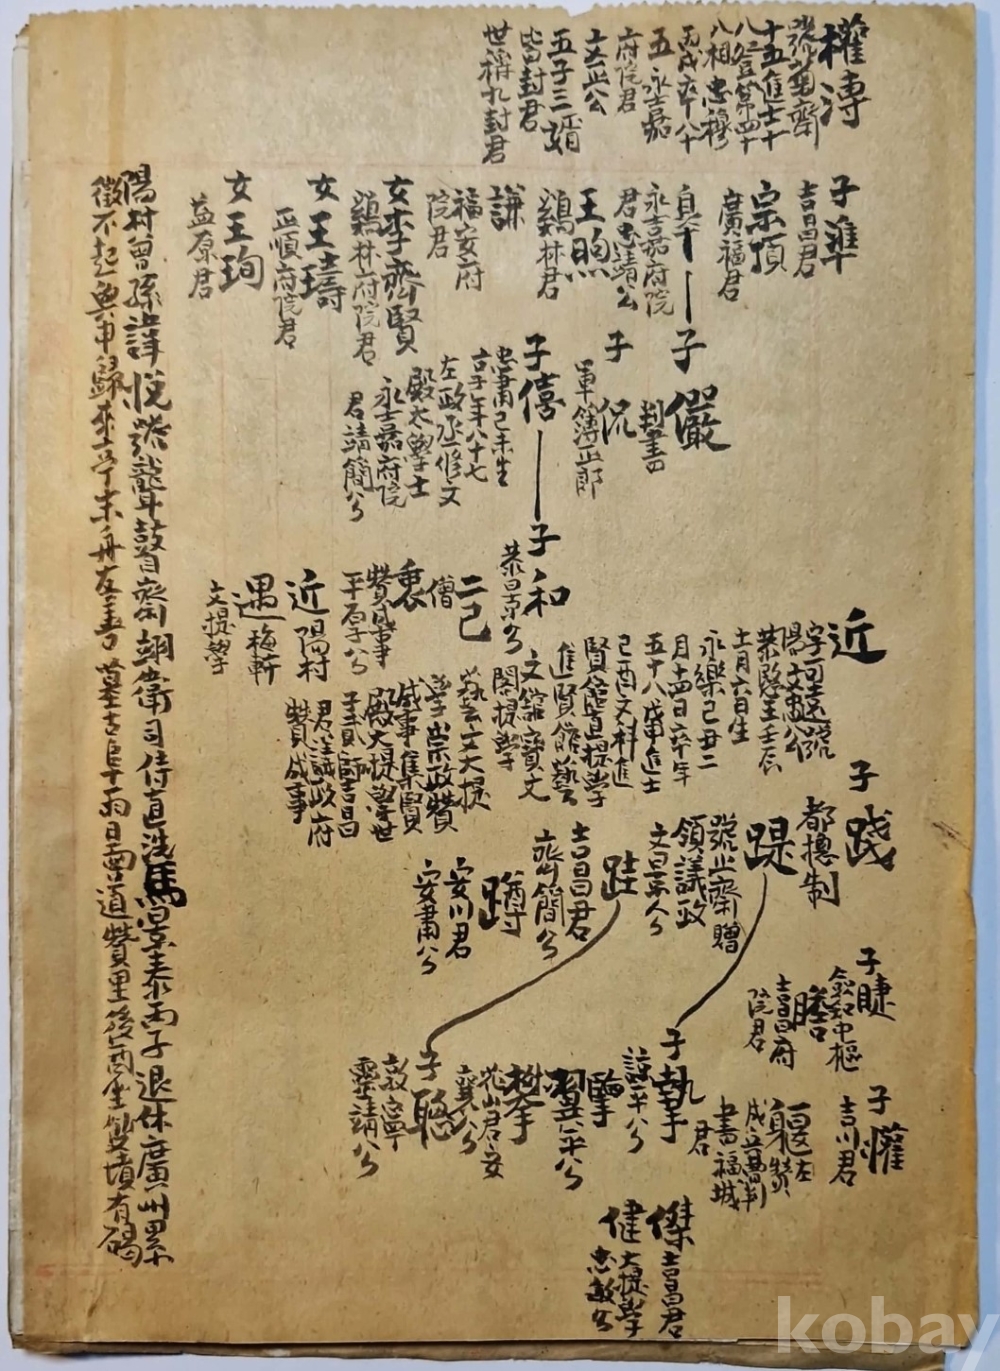 權溥
號菊齋
十五進士十
八登第四十
八相忠穆
丙戌卒八十
五 永嘉
府院君
文正公
五子三婿
皆封君
世稱九封君
子準
吉昌君
宗頂
廣福君
皐
永嘉府院
君忠靖公
王煦
鷄林君
謙
福安府
院君
女李齊賢
鷄林府院君
女王璹
正順府院君
女王珣
益原君
子儼
判書
子侃
軍簿正郎
子僖
忠肅己未生
吉年八十七
左政丞修文
殿太學士
永嘉府院
君靖簡公
子和
恭景公
二己
僧
衷
贊成事
平原公
近
陽村
遇
梅軒
文提學
近
字可遠號
陽村文忠公
恭愍王壬辰
十一月六日生
永樂己丑二
月十四日卒年
五十八戊申進士
己酉文科進
賢館直提學
進賢館藝
文館寶文
閣提學
藝文大提
學崇政贊
成事集賢
殿大提學世
子貳師吉昌
君議政府
贊成事
子踐
都摠制
踶
號止齋贈
領議政
文景公
跬
吉昌君
齊簡公
蹲
安川君
安肅公
子睫
僉知中樞
瞻
吉昌府
院君
子擥
諒平公
擎
翼平公
攀
花山君安
襄公
子聰
敦寧
靈靖公
子懽
吉川君
躽
左贊
成兵判
書福城
君
傑
吉昌君
健
大提學
忠敏公
陽村曾孫諱悅號聾瞽齋翊衛司侍直洗馬景泰丙子退休廣州累
徵不起與申歸來亭末舟友善 墓古阜雨日面道贊里後酉坐雙墳有碣
kobay